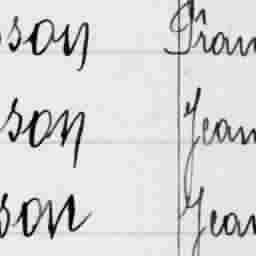 son Fran
son Jean
son Jean